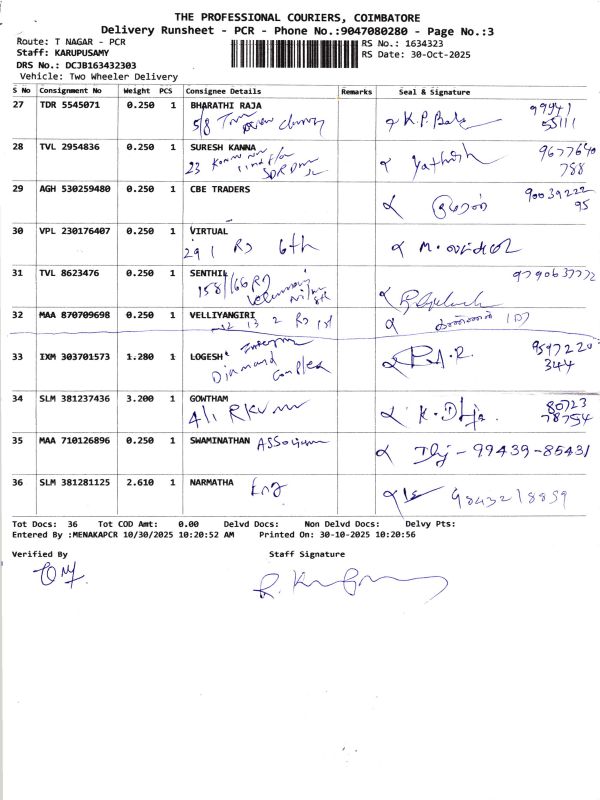 THE PROFESSIONAL COURIERS, COIMBATORE
Delivery Runsheet - PCR - Phone No.:9047080280 - Page No.:3
Route: T NAGAR - PCR
RS No.: 1634323
Staff: KARUPUSAMY
RS Date: 30-Oct-2025
DRS No.: DCJB163432303
Vehicle: Two Wheeler Delivery
S No Consignment No Weight PCS Consignee Details Remarks Seal & Signature
27 TDR 5545071 0.250 1 BHARATHI RAJA 99941
5/8 K.P. 55111
28 TVL 2954836 0.250 1 SURESH KANNA 9677640
23 788
29 AGH 530259480 0.250 1 CBE TRADERS 90039222
95
30 VPL 230176407 0.250 1 VIRTUAL
29 1 RD 6th M.
31 TVL 8623476 0.250 1 SENTHIL 9790637772
158/166 RD
32 MAA 870709698 0.250 1 VELLIYANGIRI
12 13 2 RD 1st
33 IXM 303701573 1.280 1 LOGESH 9597220
Diamond Complex P.A.R. 344
34 SLM 381237436 3.200 1 GOWTHAM 80723
4/1 RK K. 78754
35 MAA 710126896 0.250 1 SWAMINATHAN 99439-85431
36 SLM 381281125 2.610 1 NARMATHA Eng 9843218859
Tot Docs: 36 Tot COD Amt: 0.00 Delvd Docs: Non Delvd Docs: Delvy Pts:
Entered By :MENAKAPCR 10/30/2025 10:20:52 AM Printed On: 30-10-2025 10:20:56
Verified By Staff Signature